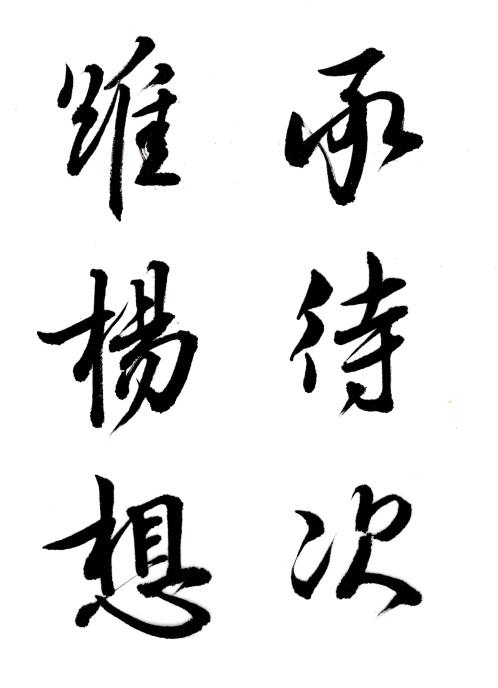 承待次
雖楊想